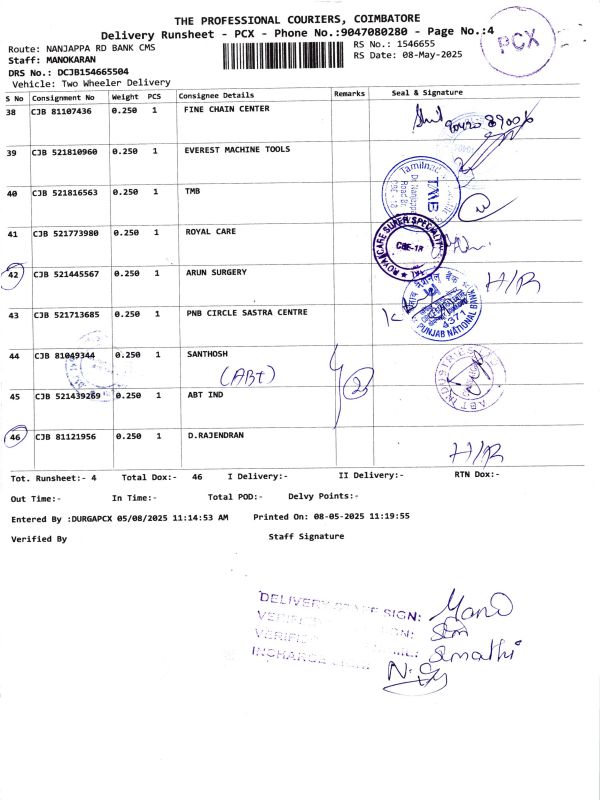 THE PROFESSIONAL COURIERS, COIMBATORE
Delivery Runsheet - PCX - Phone No.:9047080280 - Page No.:4
PCX
Route: NANJAPPA RD BANK CMS
RS No.: 1546655
Staff: MANOKARAN
RS Date: 08-May-2025
DRS No.: DCJB154665504
Vehicle: Two Wheeler Delivery
S No Consignment No Weight PCS Consignee Details Remarks Seal & Signature
38 CJB 81107436 0.250 1 FINE CHAIN CENTER
39 CJB 521810960 0.250 1 EVEREST MACHINE TOOLS
40 CJB 521816563 0.250 1 TMB
Tamilnad
TMB
41 CJB 521773980 0.250 1 ROYAL CARE
ROYALCARE SUPER SPECIALITY
CBE-18
42 CJB 521445567 0.250 1 ARUN SURGERY H/R
43 CJB 521713685 0.250 1 PNB CIRCLE SASTRA CENTRE
4371
PUNJAB NATIONAL BANK
44 CJB 81049344 0.250 1 SANTHOSH
(ABt)
2
ABT INDUSTRIES
45 CJB 521439269 0.250 1 ABT IND
46 CJB 81121956 0.250 1 D.RAJENDRAN H/R
Tot. Runsheet:- 4 Total Dox:- 46 I Delivery:- II Delivery:- RTN Dox:-
Out Time:- In Time:- Total POD:- Delvy Points:-
Entered By :DURGAPCX 05/08/2025 11:14:53 AM Printed On: 08-05-2025 11:19:55
Verified By Staff Signature
DELIVERY STAFF SIGN: Mano
SIGN:
INCHARGE